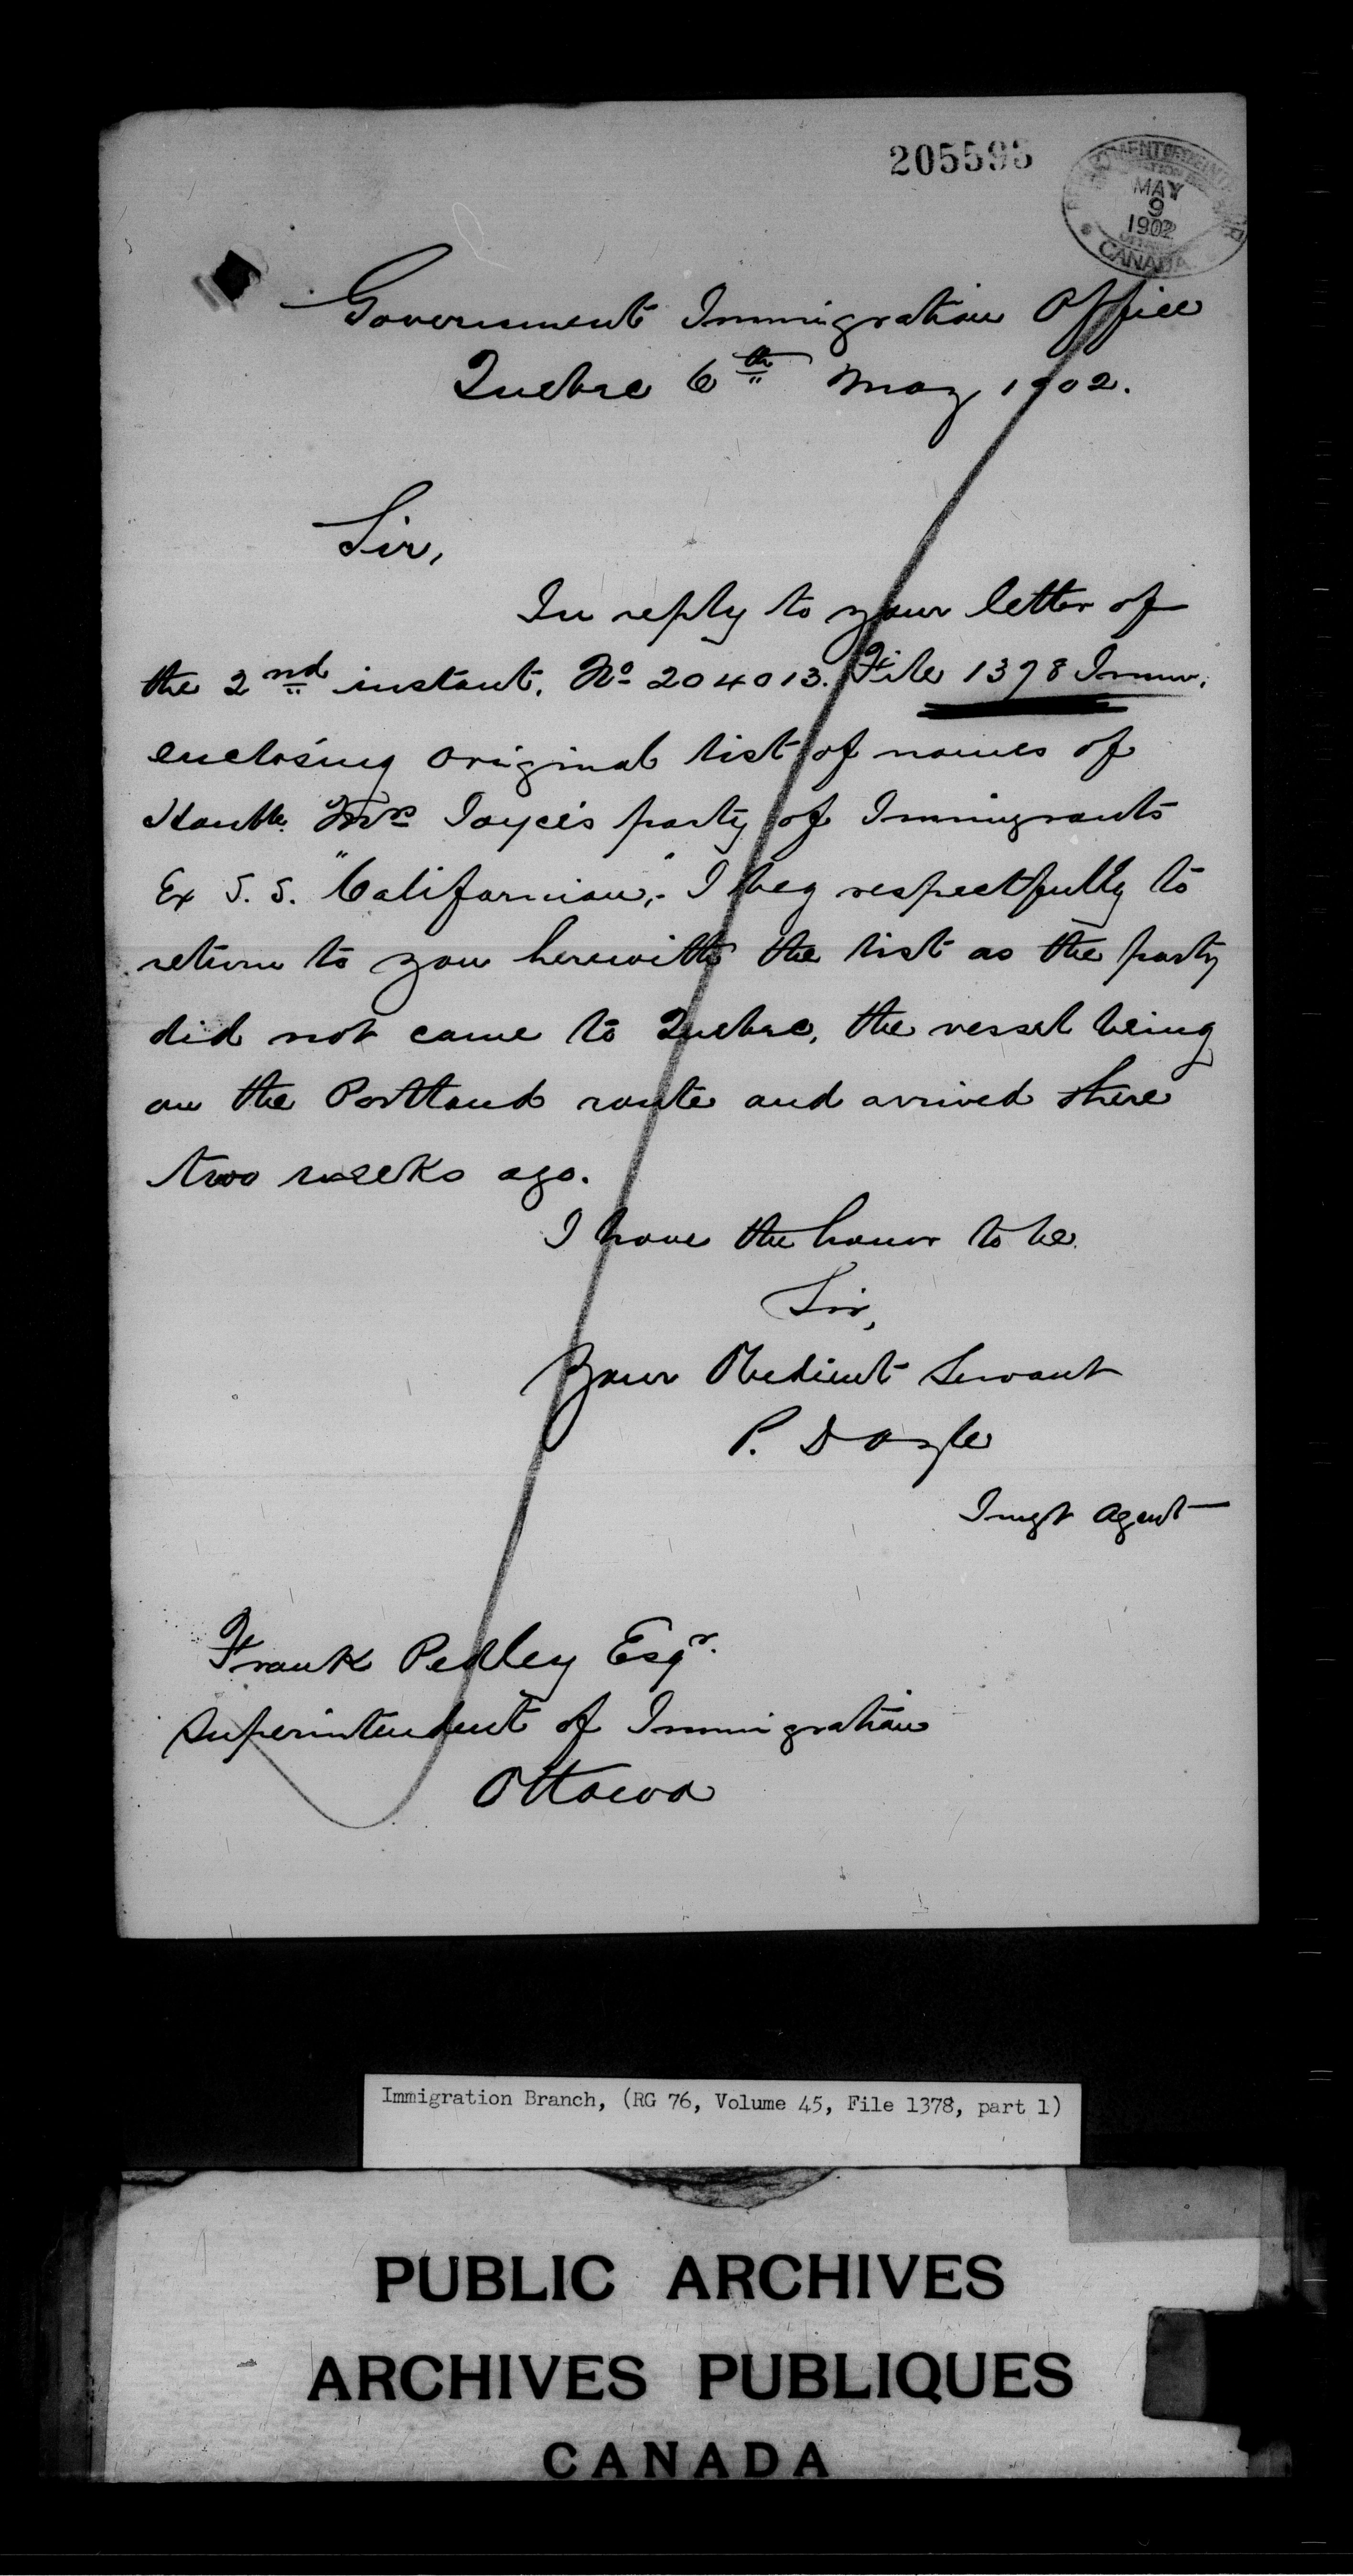 205595
DEPARTMENT OF THE INTERIOR
MAY
9
1902
OTTAWA
CANADA
Government Immigration Office
Quebec 6th May 1902.
Sir,
In reply to your letter of
the 2nd instant. No 204013. File 1378 Immn.
enclosing original list of names of
Honble. Mrs Joyce's party of Immigrants
Ex S. S. "Californian," I beg respectfully to
return to you herewith the list as the party
did not come to Quebec, the vessel being
on the Portland route and arrived there
two weeks ago.
I have the honor to be
Sir,
Your Obedient Servant
P. Doyle
Imgt Agent
Frank Pedley Esqr.
Superintendent of Immigration
Ottawa
Immigration Branch, (RG 76, Volume 45, File 1378, part 1)
PUBLIC ARCHIVES
ARCHIVES PUBLIQUES
CANADA